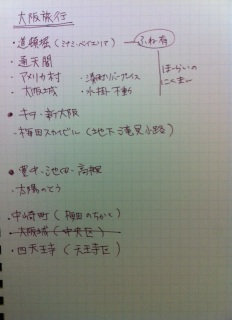 大阪旅行
・道頓堀(ミナミ・ベイエリア) ふね有
・通天閣
・アメリカ村 ・湊町リバープレイス ほーらいの
・大阪城 ・水掛不動 にくまん
・キタ・新大阪
・梅田スカイビル(地下滝見小路)
・豊中・池田・高槻
・太陽のとう
・中崎町(梅田のちかく)
・大阪城(中央区)
・四天王寺(天王寺区)